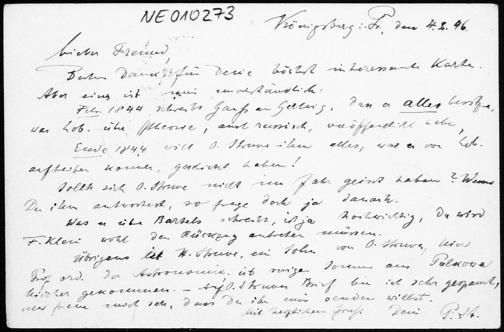 NE010273
Königsberg i. Pr., den 4.2.96.
Lieber Freund
Besten Dank für Deine höchst interessante Karte.
Aber eins ist mir unverständlich:
Febr. 1844 schreibt Gauß an Gerling, dass er alles besitze,
was Lob. über Theorie, auch russisch, veröffentlicht habe,
Ende 1844 will O. Struve ihm alles, was er von Lob.
auftreiben konnte, geschickt haben!
Sollte sich O. Struve nicht im Jahr geirrt haben? Wenn
Du ihm antwortest, so frage doch ja danach.
Was er über Bartels schreibt, ist ja hochwichtig, da wird
F. Klein wohl den Rückzug antreten müssen.
Übrigens ist H. Struve, ein Sohn von O. Struve, hier
Prof. ord. der Astronomie, ist vorigen Sommer aus Pulkowa
hierher gekommen. – Auf O. Struves Brief bin ich sehr gespannt,
und freue mich sehr, dass Du ihn mir senden willst.
Mit herzlichem Gruß Dein P. St.